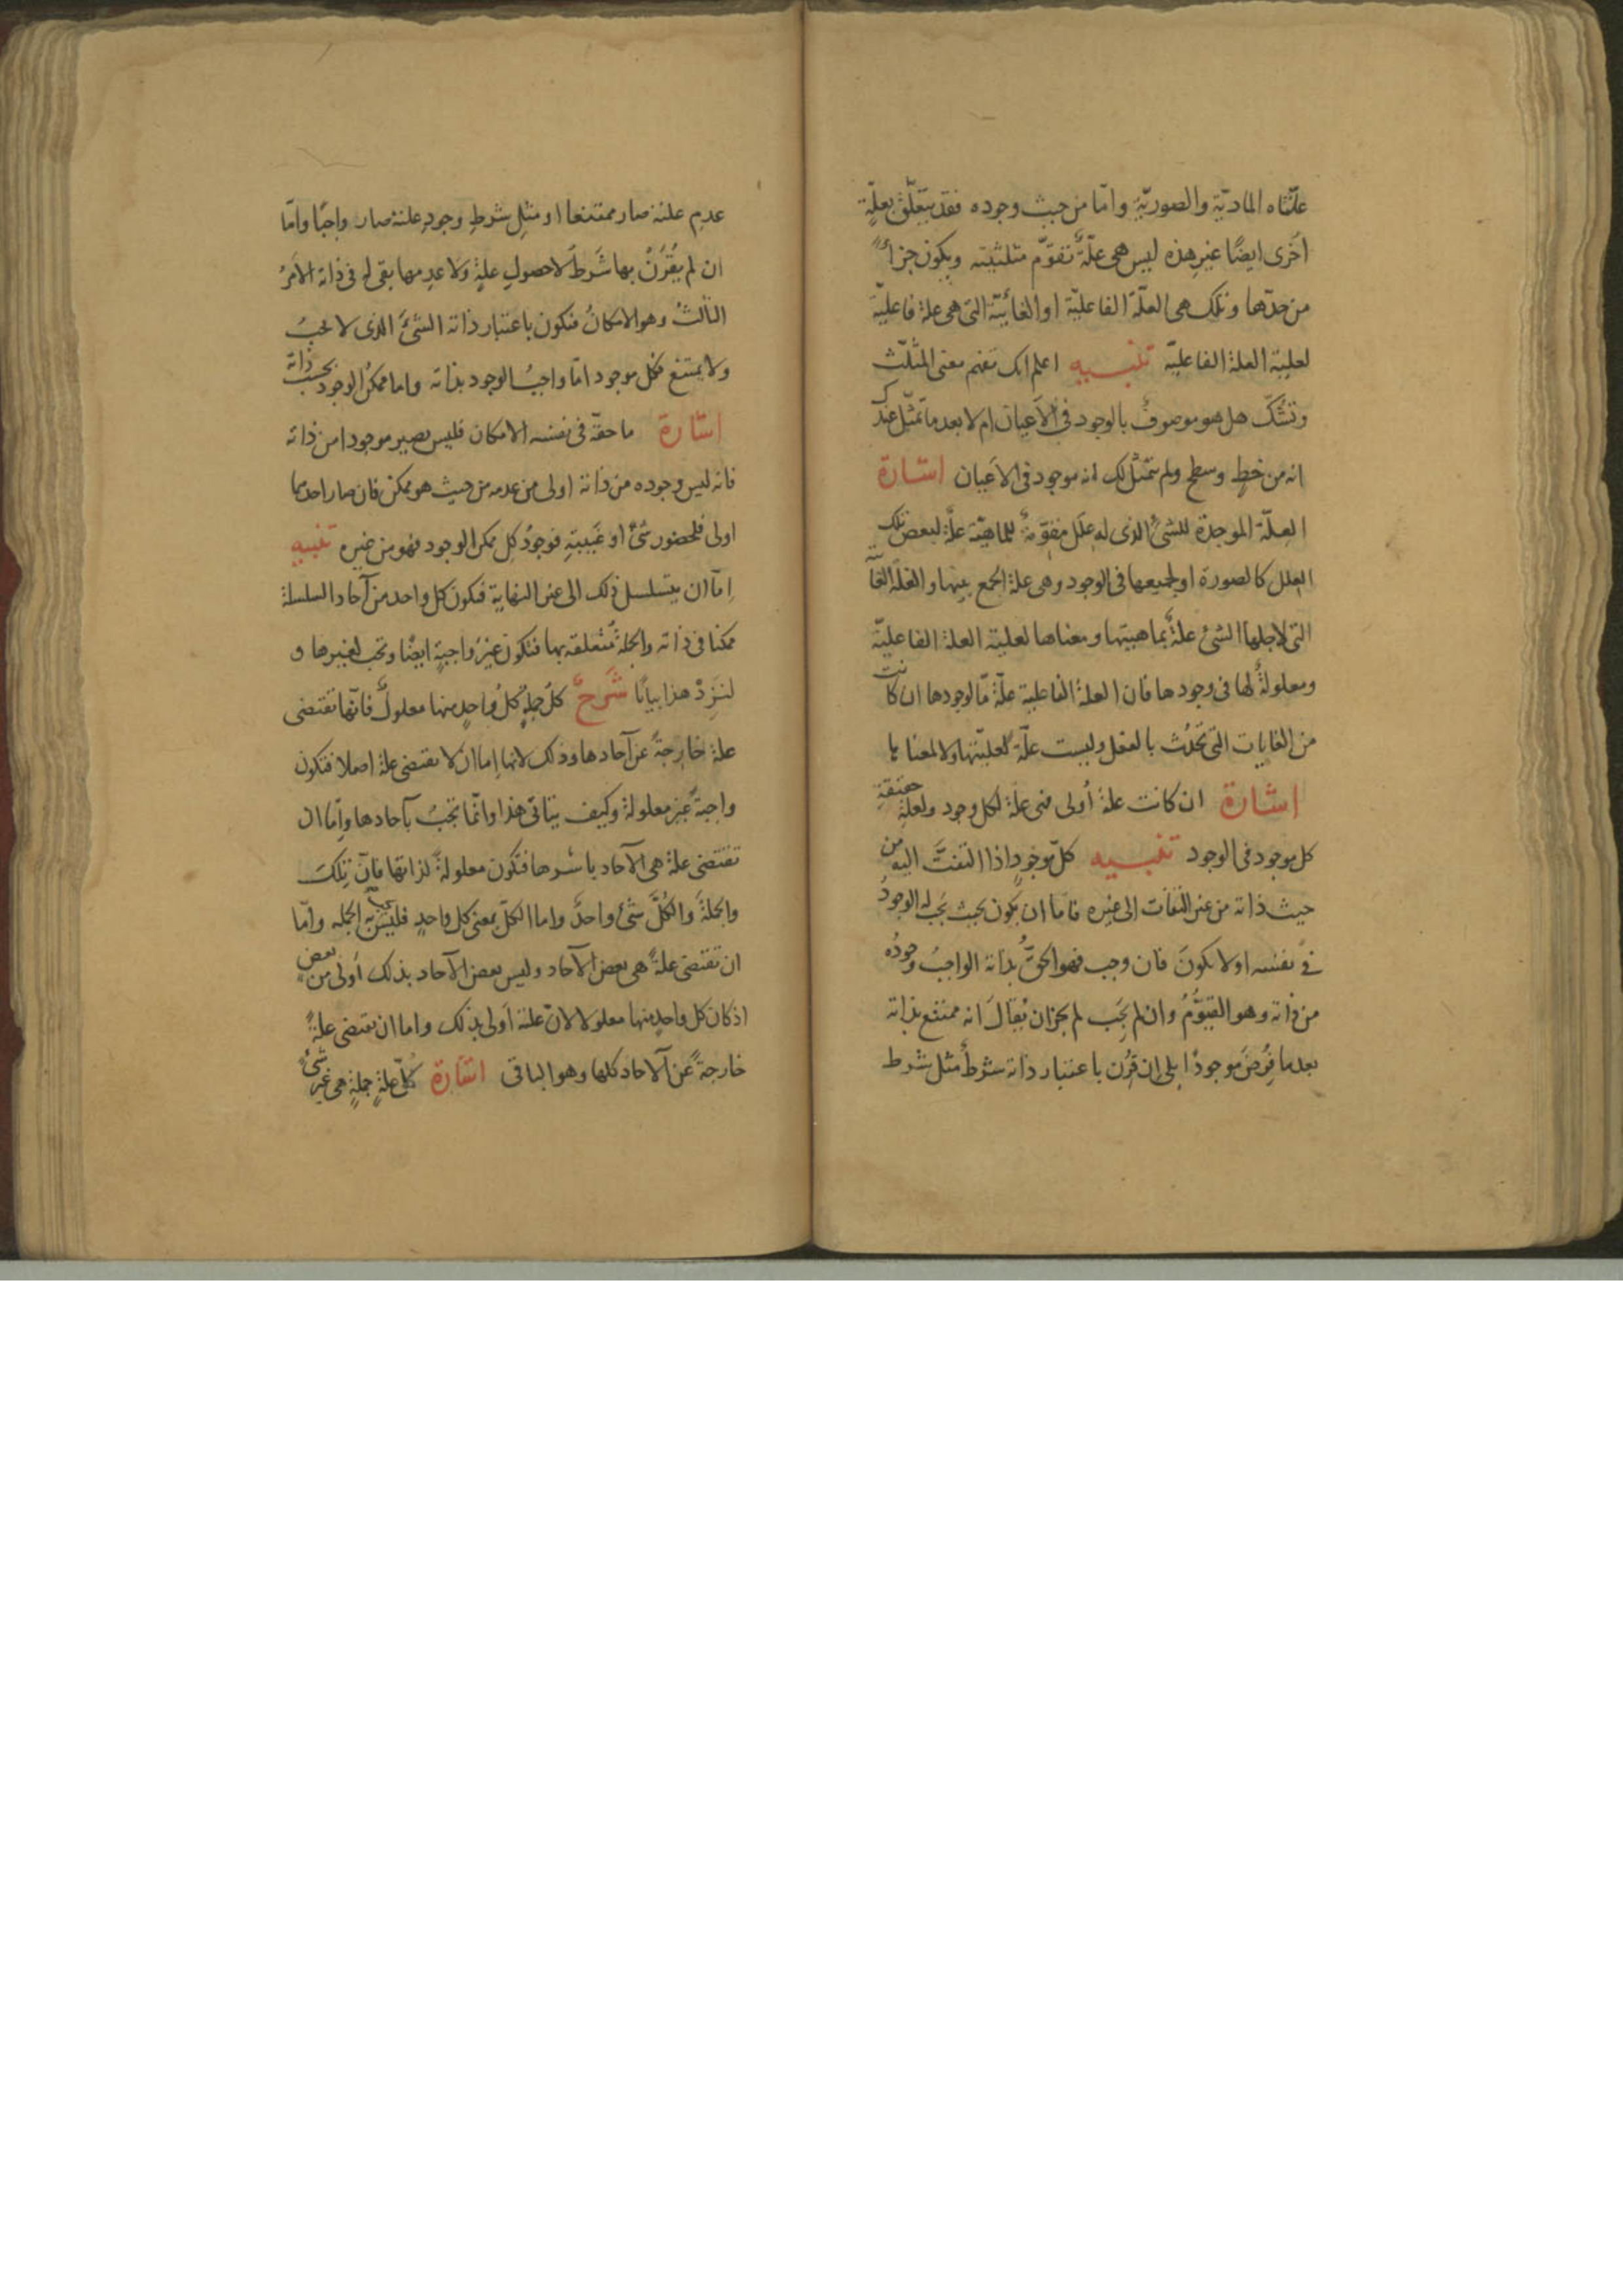 علّتاه المادّيّة والصوريّة وامّا من حيث وجوده فقد يتعلّق بعلّةٍ
اُخرى ايضًا غير هذه ليس هى علّةٌ تقوّم مثلثيته ويكون جزأً
من حدّها وتلك هى العلّة الفاعليّة او الغائيّة التى هى علة فاعليّة
لعلية العلة الفاعليّة تنبــيه اعلم انك تفهم معنى المثلّث
وتشكّ هل هو موصوفٌ بالوجود فى الاَعيان ام لا بعد ما تمثّل عندك
انه من خطٍ وسطح ولم يتمثّل لك انه موجود فى الاَعيان اشارة
العلّة الموجدة للشئ الذى له علل مقوّمةٌ للماهيّة علّة لبعض تلك
العلل كالصورة او لجميعها فى الوجود وهى علة الجمع بينها والعلّة الغائية
التى لاجلها الشئ علةٌ بماهيتها ومعناها لعلية العلة الفاعليّة
ومعلولةٌ لها فى وجودها فان العلة الفاعلية علّة مّا لوجودها ان كانت
من الغايات التى تحدُث بالفعل وليست علّة لعليّتها ولا لمعناها
اشارة ان كانت علة اُولى فهى علة لكل وجود ولعلةِ حقيقةِ
كل موجود فى الوجود تنبــيه كلّ موجودٍ اذا التفتَّ اليه من
حيث ذاته من غير التفات الى غيره فاما ان يكون بحيث يجب له الوجودُ
فى نفسه او لا يكونَ فان وجب فهو الحقُّ بذاته الواجبُ وجودُه
من ذاته وهو القيّومُ وان لم يَجِب لم يجز ان يُقالَ انه ممتنع بذاته
بعد ما فُرضَ موجودًا بلى ان قُرن باعتبار ذاته شرطٌ مثل شرط
عدمِ علته صار ممتنعا او مثلِ شرطِ وجودِ علته صار واجبًا وامّا
ان لم يُقْرَنْ بها شَرطٌ لا حصولِ علةٍ ولا عدمها بقى له فى ذاته الاَمرُ
الثالثُ وهو الامكانُ فتكون باعتبار ذاته الشئَ الذى لا يجبُ
ولا يمتنع فكل موجود امّا واجبُ الوجود بذاته واما ممكنُ الوجود بحسب ذاته
اشارة ما حقّه فى نفسه الامكان فليس يصير موجودا من ذاته
فانه ليس وجوده من ذاته اولى من عدمه من حيث هو ممكن فان صار احدهما
اولى فلحضور شئٍ او غَيبتِهِ فوجودُ كل ممكن الوجود فهو من غيره تنبيه
اِمّا ان يتسلسل ذلك الى غير النهاية فتكون كل واحد من آحاد السلسلة
ممكنا فى ذاته والجملةُ متعلقة بها فتكون غيرَ واجبةٍ ايضًا وتجب بغيرها و
لنَزِدْ هذا بيانًا شرحٌ كلّ جملةٍ كلُ واحدٍ منها معلولٌ فانّها تقتضى
علة خارجةً عن آحادها وذلك لانها اِما ان لا تقتضى علة اصلا فتكون
واجبةً غير معلولة وكيف يتاتى هذا وانّما تجبُ بآحادها وإمّا ان
تقتضى علة هى الآحاد باسرها فتكون معلولةً لذاتها فانّ تلكَ
والجملةَ والكُلَّ شئٌ واحدٌ واما الكلّ بمعنى كل واحدٍ فليس تجب به الجملة وامّا
ان تقتضى علةً هى بعض الآحاد وليس بعض الآحاد بذلك اَولى من بعضٍ
اذ كان كل واحدٍ منها معلولا لانّ علته اَولى بذلك واما ان تقتضى علةً
خارجةً عن الآحاد كلها وهو الباقى اشارة كلّ علةِ جملةٍ هى غير شئٍ